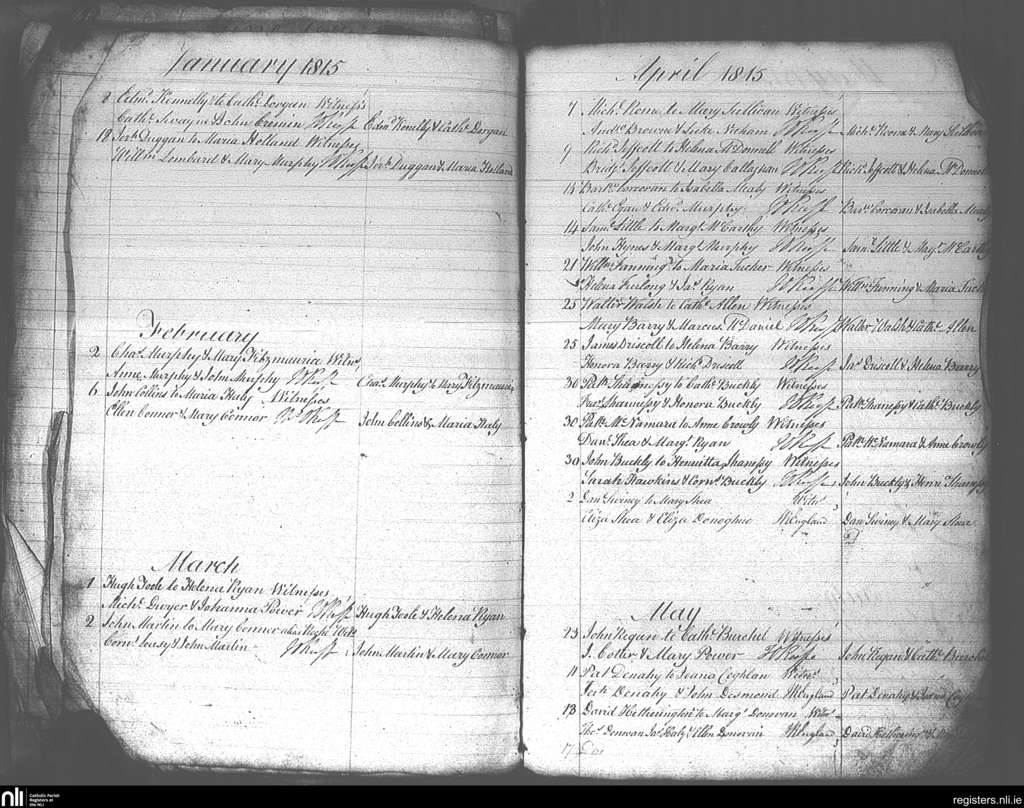 January 1815
8 Edmd. Kennelly to Cathe. Dorgan Witnesses
Cathe. Swayne & John Cremin J Rosse Edmd. Kenelly & Cathe. Dorgan
18 Jerh. Duggan to Maria Holland Witnesses
Willm. Lombard & Mary Murphy J Rosse Jerh. Duggan & Maria Holland
February
2 Chas. Murphy & Mary Fitzmaurice Witns.
Anne Murphy & John Murphy J Rosse Chas. Murphy & Mary Fitzmaurice
6 John Collins to Maria Huly Witnesses
Ellen Connor & Mary Connor J Rosse John Collins & Maria Huly
March
1 Hugh Toole to Helena Ryan Witnesses
Michl. Dwyer & Johanna Power J Rosse Hugh Toole & Helena Ryan
2 John Martin to Mary Connor alias Witns
Corns. Leasy & John Martin J Rosse John Martin & Mary Connor
April 1815
7 Michl. to Mary Sullivan Witnesses
Andw. Brown & J Rosse Michl. & Mary
9 Richd. Jeffcott to Helena McDonnell Witnesses
Bridgt. Jeffcott & Mary Callaghan J Rosse Richd. Jeffcott & Helena McDonnell
13 Bartw. Corcoran to Isabella Mealy Witnesses
Cathe. Egan & Edwd. Murphy J Rosse Barw. Corcoran & Isabella Mealy
14 Saml. Little to Margt. McCarthy Witnesses
John Hynes & Margt. Murphy J Rosse Saml. Little & Margt. McCarthy
21 Willm. Fanning to Maria Tucker Witnesses
Helena Furlong & Jas. Ryan J Rosse Willm. Fanning & Maria
25 Walter Walsh to Cathe. Allen Witnesses
Mary Barry & Marcus McDaniel J Rosse Walter Walsh & Cathe. Allen
25 James Driscoll to Helena Barry Witnesses
Honora Barry & Richd. Driscoll J Rosse Jas. Driscoll & Helena Barry
30 Patk. Shanessy to Cathe. Buckly Witnesses
Shannessy & Honora Buckly J Rosse Patk. Shanessy & Cathe. Buckly
30 Patk. McNamara to Anne Crowly Witnesses
Danl. Shea & Margt. Ryan J Rosse Patk. McNamara & Anne Crowly
30 John Buckly to Henrietta Shanessy Witnesses
Sarah Hawkins & Corns. Buckly J Rosse John Buckly & Henra. Shanessy
2 Danl. Swiney to Mary Shea Witns.
Eliza Shea & Eliza Donoghue M England Danl. Swiney & Mary Shea
May
23 John Regan to Cathe. Witnesses
J. Cotter & Mary Power J Rosse John Regan & Cathe.
11 Pat Denahy to Joana Coghlan Witns.
Jerh. Denahy & John Desmond M England Pat Denahy & Joana
13 David Hetherington to Margt. Donovan Witns.
Thos. Donovan Ellen Donovan M England David
17
nli
Catholic Parish
Registers at
the NLI
registers.nli.ie